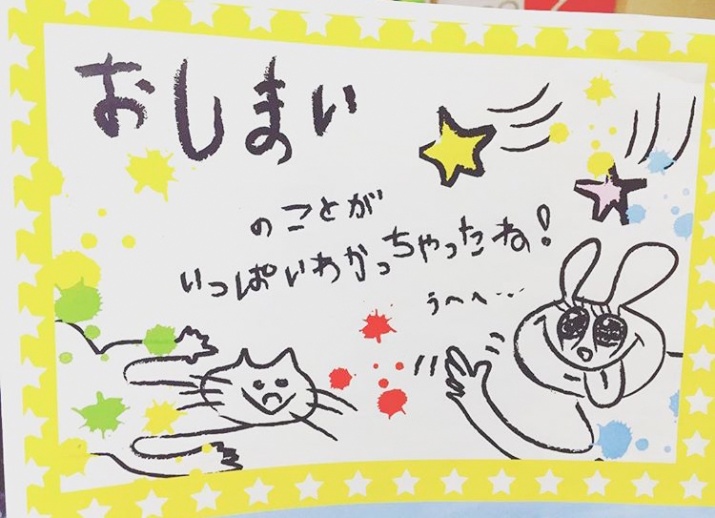 おしまい
のことが
いっぱいわかっちゃったね!
うへへ…